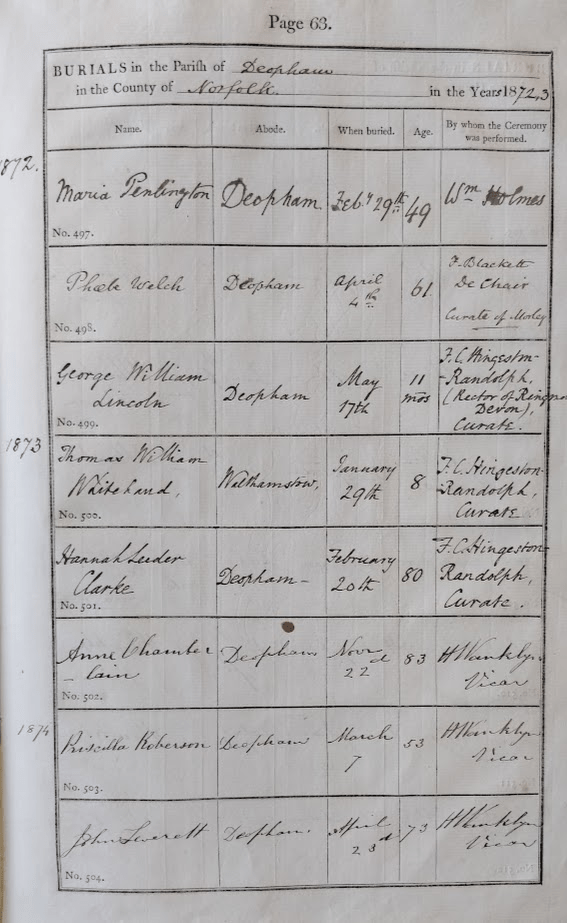 Page 63.
BURIALS in the Parish of Deopham
in the County of Norfolk in the Years 1872,3
Name. Abode. When buried. Age. By whom the Ceremony
was performed.
1872.
Maria Penlington Deopham Feby 29th 49 Wm Holmes
No. 497.
Phœbe Welch Deopham April
4th 61 F. Blackett
De Chair
Curate of Morley
No. 498.
George William
Lincoln Deopham May
17th 11
mos F. C. Hingeston-
Randolph,
(Rector of
Devon),
Curate.
No. 499.
1873
Thomas William
Whitehand, Walthamstow, January
29th 8 F. C. Hingeston-
Randolph,
Curate
No. 500.
Hannah
Clarke Deopham - February
20th 80 F. C. Hingeston-
Randolph,
Curate.
No. 501.
Anne Chamber
- lain Deopham Novr
22d 83 H Wanklyn
Vicar
No. 502.
1874
Priscilla Roberson Deopham March
7 53 H Wanklyn
Vicar
No. 503.
John Leverett Deopham April
23d 73 H Wanklyn
Vicar
No. 504.